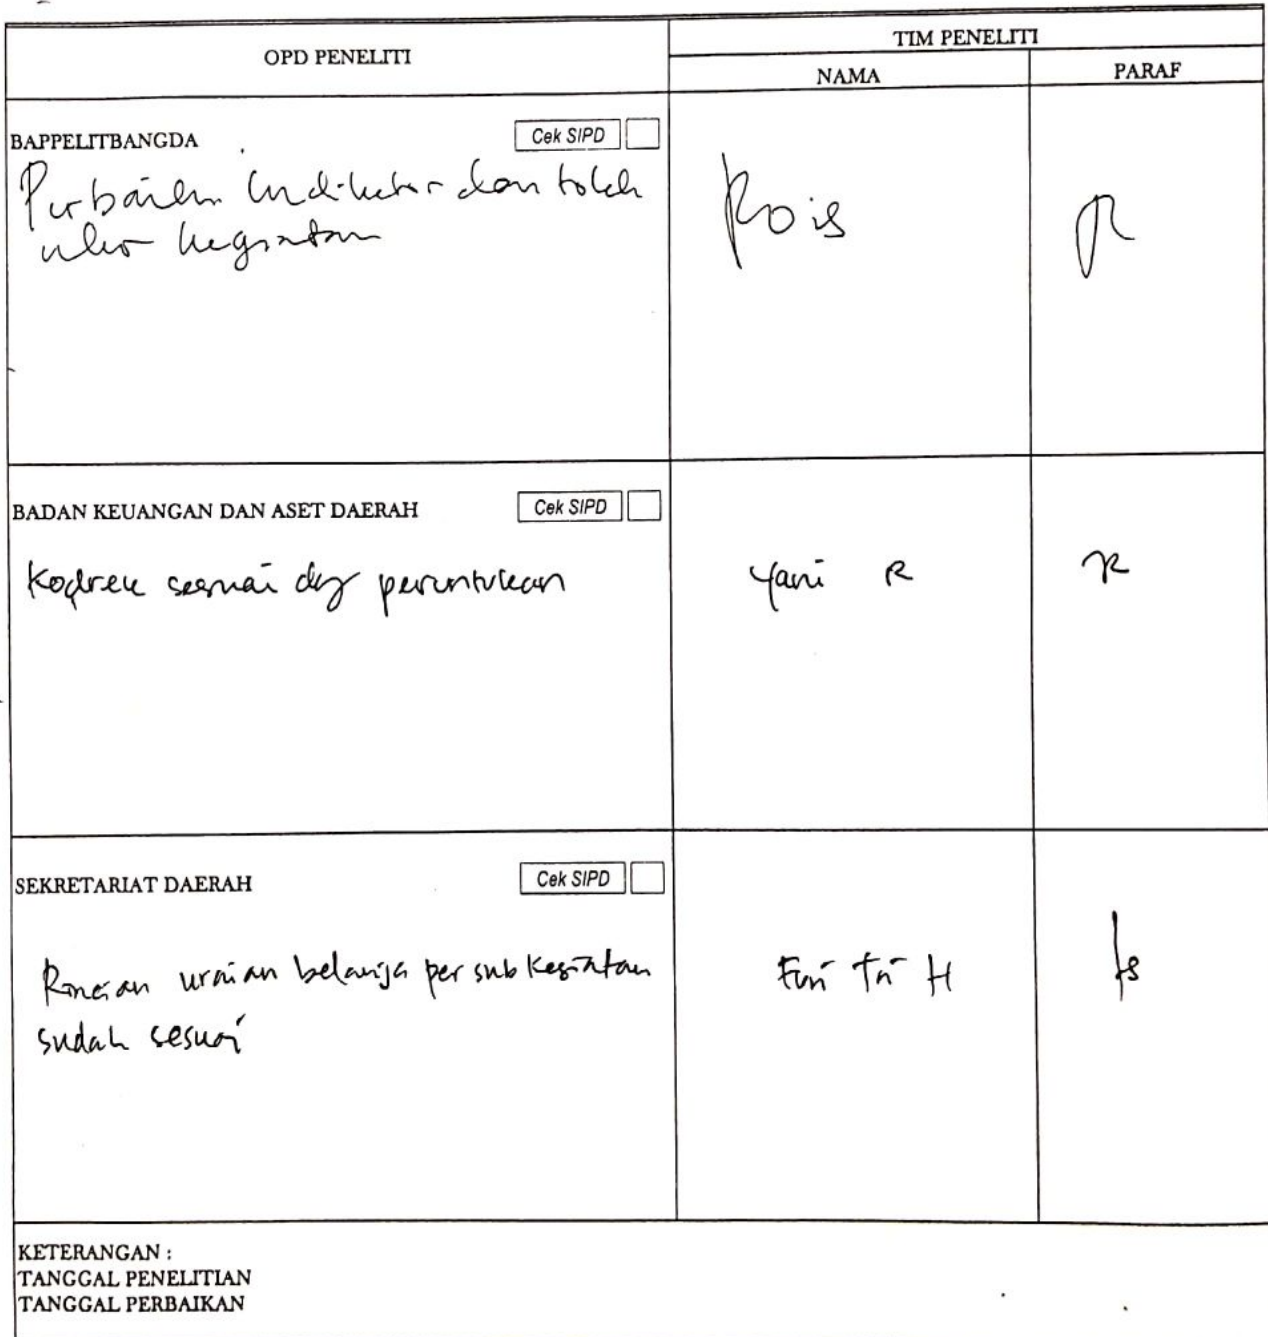 OPD PENELITI
TIM PENELITI
NAMA
PARAF
BAPPELITBANGDA
Cek SIPD
Perbaiki Indikator dan tolak
ukur kegiatan
Rois
BADAN KEUANGAN DAN ASET DAERAH
Cek SIPD
Kodrek sesuai dg peruntukan
Yani R
SEKRETARIAT DAERAH
Cek SIPD
Rincian uraian belanja per sub kegiatan
sudah sesuai
H
KETERANGAN :
TANGGAL PENELITIAN
TANGGAL PERBAIKAN